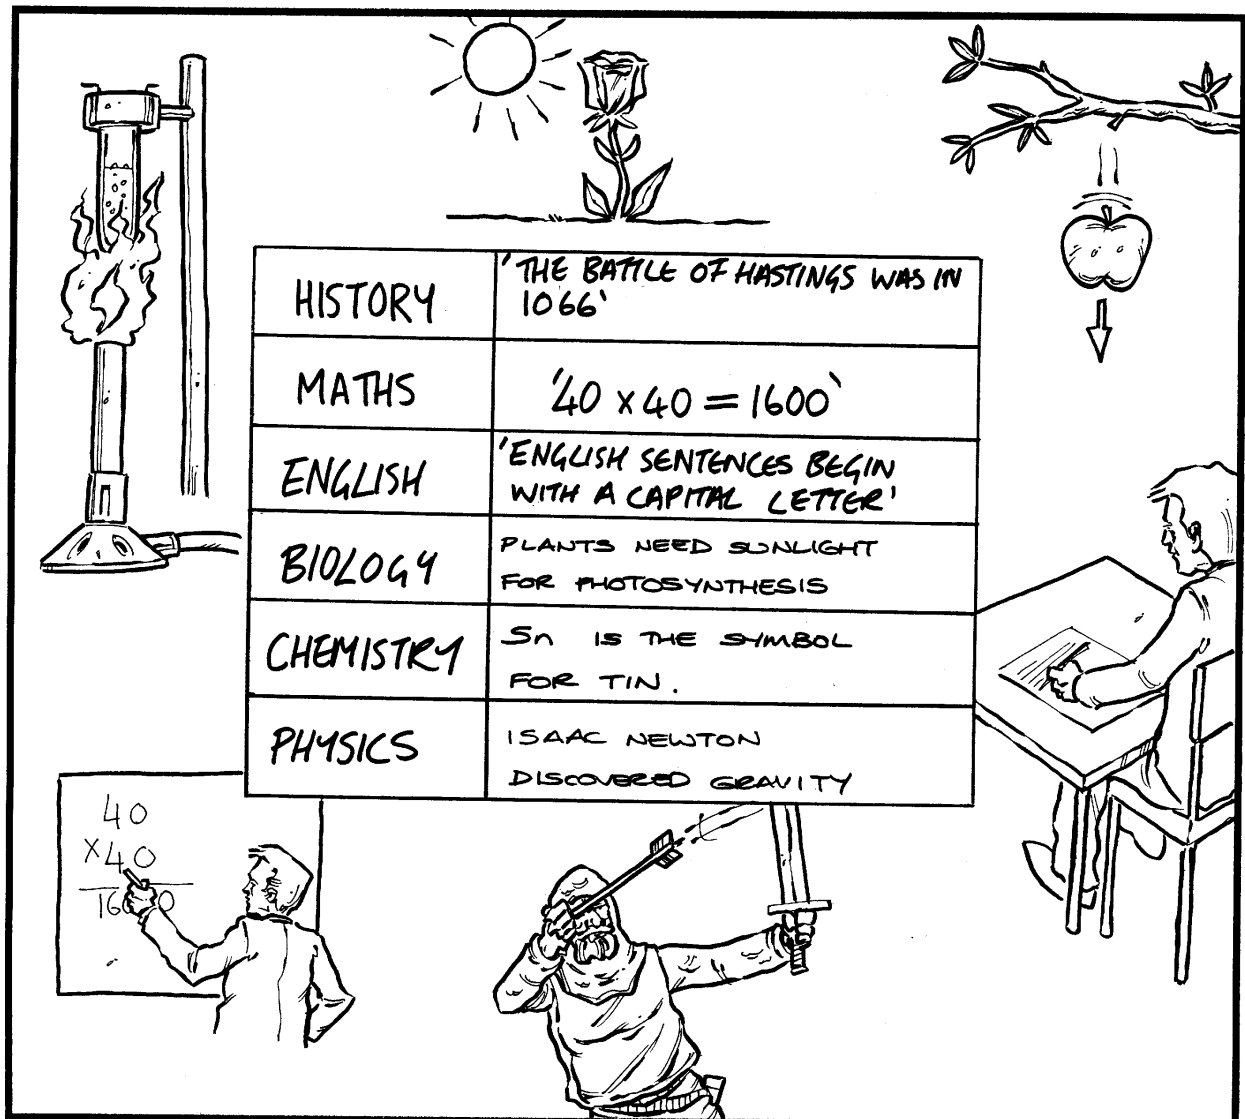 HISTORY
'THE BATTLE OF HASTINGS WAS IN
1066'
MATHS
'40 x 40 = 1600'
ENGLISH
'ENGLISH SENTENCES BEGIN
WITH A CAPITAL LETTER'
BIOLOGY
PLANTS NEED SUNLIGHT
FOR PHOTOSYNTHESIS
CHEMISTRY
Sn IS THE SYMBOL
FOR TIN.
PHYSICS
ISAAC NEWTON
DISCOVERED GRAVITY
40
x40